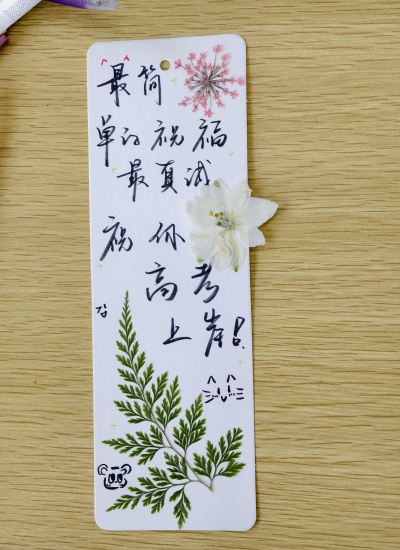 最简
单的祝福
最真诚
祝你
高考
上岸!